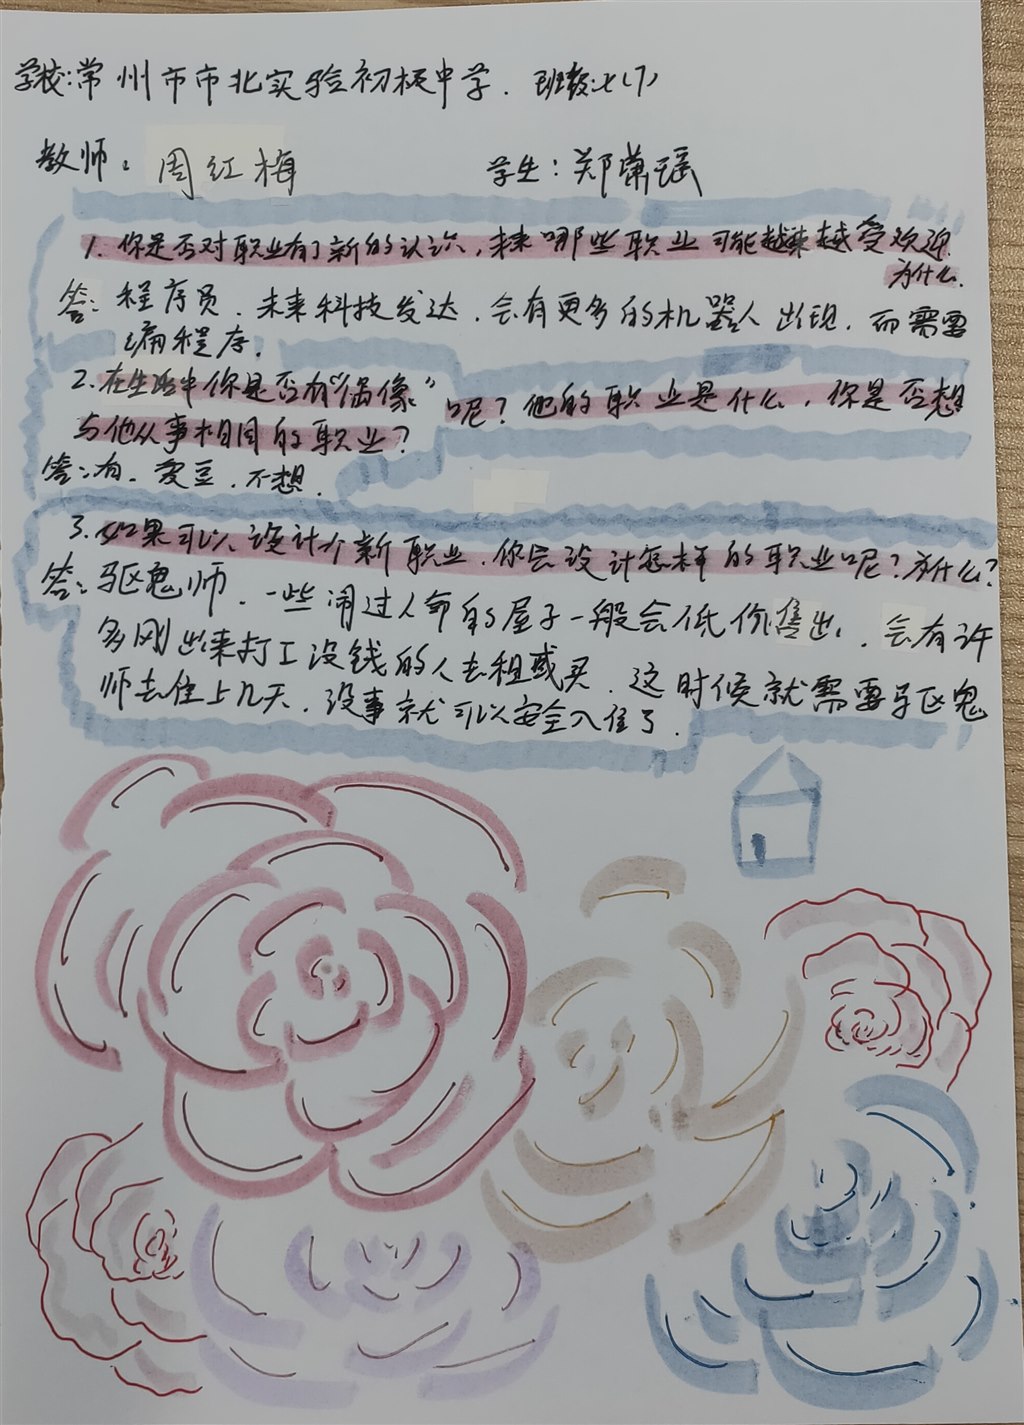 学校:常州市市北实验初级中学. 班级:七(7)
教师: 周红梅 学生:郑萧瑶
1. 你是否对职业有了新的认识,未来哪些职业可能越来越受欢迎.
为什么.
答:程序员.未来科技发达.会有更多的机器人出现.而需要
编程序.
2.在生活中你是否有“偶像”呢?他的职业是什么.你是否想
与他从事相同的职业?
答:有.爱豆.不想.
3.如果可以设计个新职业.你会设计怎样的职业呢?为什么?
答:驱鬼师.一些闹过人命的屋子一般会低价售出.会有许
多刚出来打工没钱的人去租或买.这时候就需要驱鬼
师去住上几天.没事就可以安全入住了.